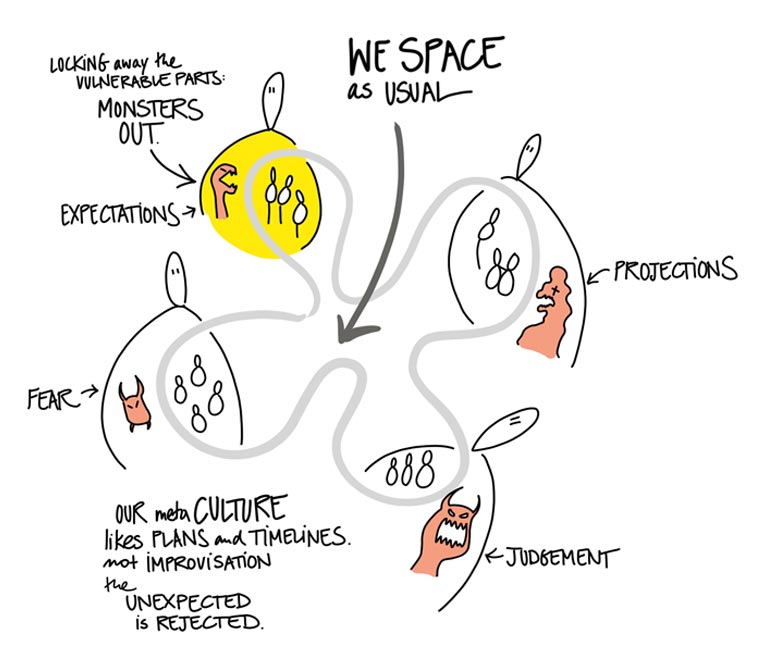 LOCKING away the
VULNERABLE PARTS:
MONSTERS
OUT.
WE SPACE
as USUAL
EXPECTATIONS
PROJECTIONS
FEAR
JUDGEMENT
OUR meta CULTURE
likes PLANS and TIMELINES.
not IMPROVISATION
the
UNEXPECTED
is REJECTED.